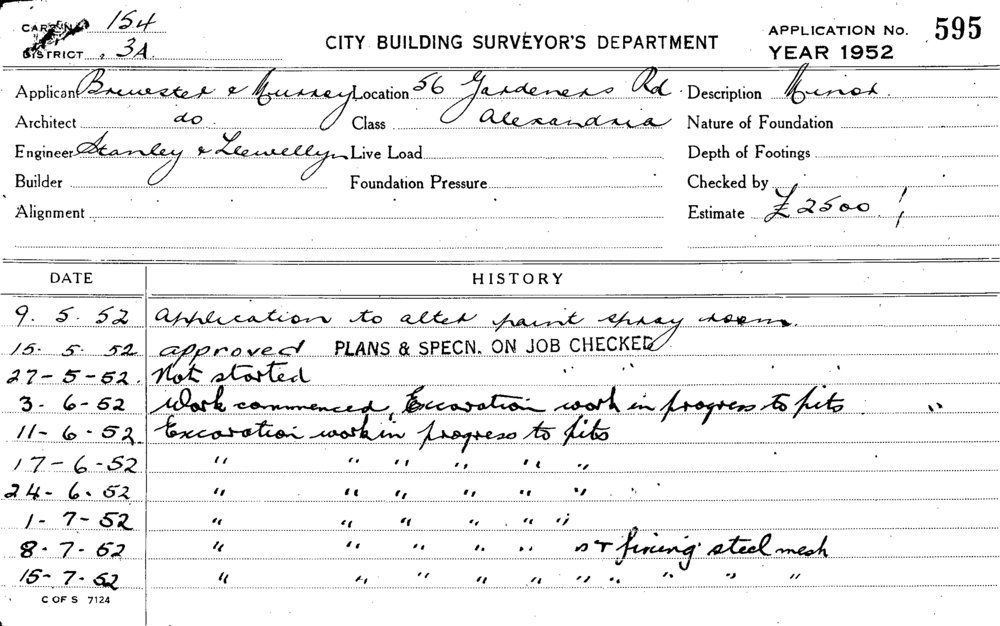 CARD No. 154
DISTRICT 3A.
CITY BUILDING SURVEYOR'S DEPARTMENT
APPLICATION No. 595
YEAR 1952
Applicant Brewster & Murray Location 56 Gardeners Rd Description Minor.
Architect do Class Alexandria Nature of Foundation
Engineer Stanley & Llewellyn Live Load Depth of Footings
Builder Foundation Pressure Checked by
Alignment Estimate £2500
DATE HISTORY
9. 5. 52 Application to alter paint spray room.
15. 5. 52 approved PLANS & SPECN. ON JOB CHECKED
27-5-52. Not started
3. 6-52 Work commenced, Excavation work in progress to pits "
11-6.52. Excavation work in progress to pits
17-6-52 " " " " " "
24-6.52 " " " " " "
1-7-52 " " " " " "
8.7.52 " " " " " " & fixing steel mesh
15-7.52 " " " " " " " " " "
C OF S 7124